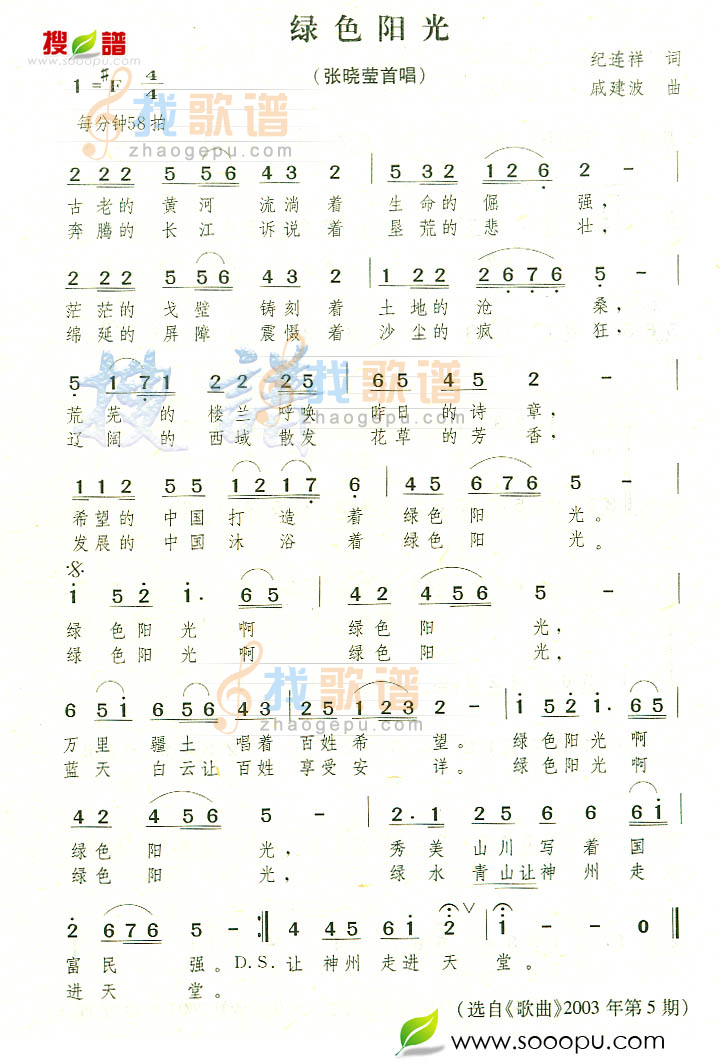 绿色阳光
搜谱
www.sooopu.com
(张晓莹首唱)
纪连祥 词
戚建波 曲
1=#F 4/4
每分钟58拍
找歌谱
zhaogepu.com
2 222 5 556 43 2 | 5 32 126 2 - |
古老的 黄河 流淌着 生命的倔 强,
奔腾的 长江 诉说着 垦荒的悲 壮,
2 222 5 556 43 2 | 1 22 2676 5 - |
茫茫的 戈壁 铸刻着 土地的沧 桑,
绵延的 屏障 震慑着 沙尘的疯 狂,
搜谱
找歌谱
zhaogepu.com
5 171 22 225 | 65 45 2 - |
荒芜的楼兰呼唤 昨日的诗章,
辽阔的西域散发 花草的芳香,
112 55 1217 6 | 45 676 5 - |
希望的中国打造着 绿色阳光。
发展的中国沐浴着 绿色阳光。
1 521. 65 | 42 456 5 - |
绿色阳光啊 绿色阳光,
绿色阳光啊 绿色阳光,
找歌谱
zhaogepu.com
6 51 656 43 | 25 123 2 - | 1 521. 65 |
万里疆土唱着 百姓希望。 绿色阳光啊
蓝天白云让百姓享受安详。 绿色阳光啊
42 456 5 - | 2.1 25 6 6 61 |
绿色阳光, 秀美山川写着国
绿色阳光, 绿水青山让神州走
2 676 5 - :‖ 4 445 61 2 ∨ | 1 - - 0 ‖
富民强。D.S.让神州走进天堂。
进天堂。
(选自《歌曲》2003年第5期)
www.sooopu.com